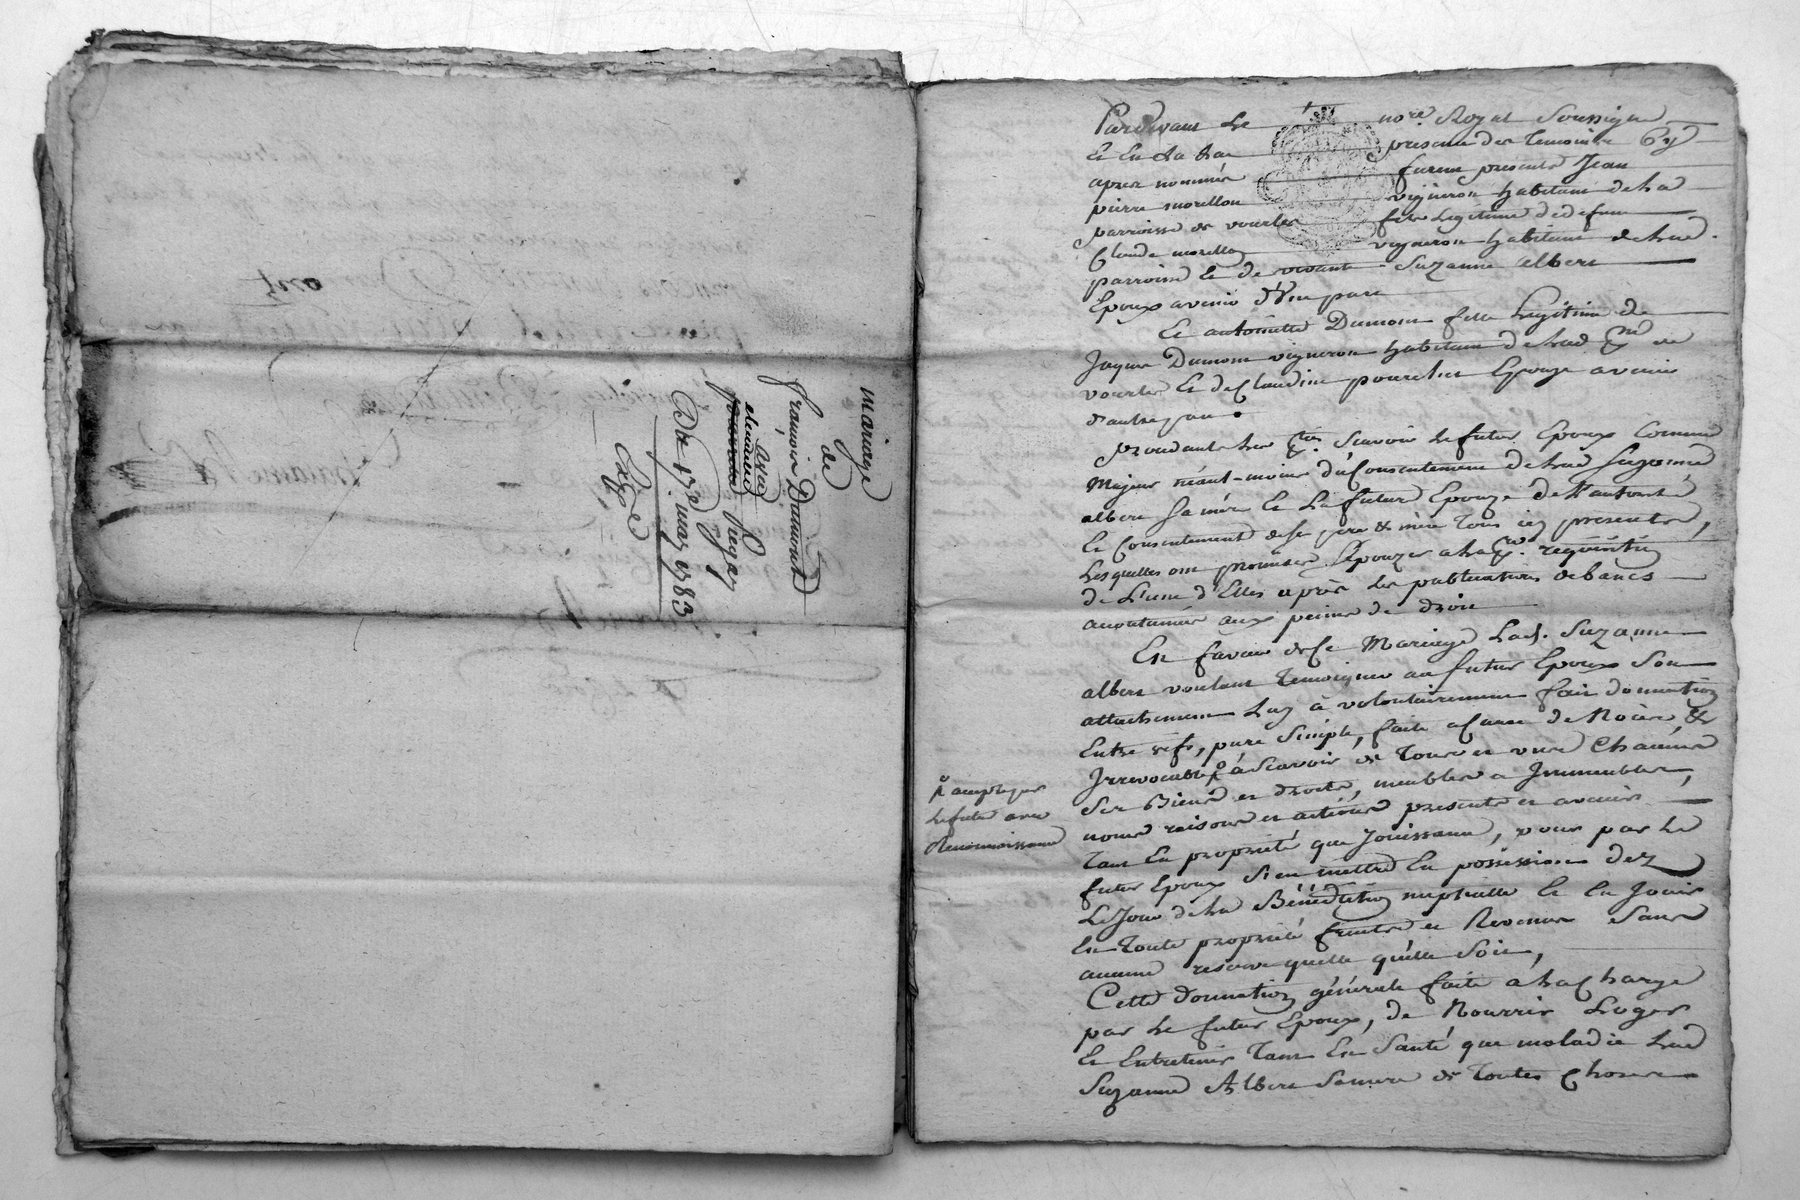 mariage
de
francoise Dumond
avec
claudine Piegay
Du 17e may 1783
Exp.e
Pardevant Le nore. Royal Soussigné
Et En La presence des Temoins Cy
apres nommés furent presents Jean
pierre morellon vigneron habitant de La
parroisse de vourles fils Legitime de defunt
Claude morellon vigneron habitant de Lad.
parroisse Et de vivante Suzanne albert
Epoux avenir d'Une part
Et antoinette Dumont fille Legitime de
Jaque Dumont vigneron habitant de Lad. de
vourles Et de Claudine Epouze avenir
d'autre part
Procedants Les Scavoir Le futur Epoux Comme
Majeur néant-moins du Consentement de Lad. Suzanne
albert Sa mére Et La future Epouze de L'autorité
Et Consentement de Ses pere & mère Tous icy presents,
Lesquelles ont promis Epouzer a La requisition
de L'une d'Elles après Les publications de bancs
accoutumés aux peines de droit
En faveur de Ce Mariage Lad. Suzanne
albert voulant Temoigner au futur Epoux Son
attachement Luy à volontairement fait donnation
Entre vifs, pure Simple, faite a Cause de Noces &
Irrevocable à Scavoir de Tous et un Chacuns
Ses Biens et droits, meubles et Immeubles,
noms raisons et actions presents et avenir
Tant En proprieté que Jouissance, pour par Le
futur Epoux S'en mettre En possession dez
Le Jour de La Bénédiction nuptialle Et En Jouir
En Toute proprieté fruits et Revenus Sans
aucune reserve quelle quélle Soit,
Cette donnation générale faite à La Charge
par Le futur Epoux, de Nourrir Loger
Et Entretenir Tant En Santé que maladie Lad.
Suzanne Albert Sa mere de Toutes Choses
Le futur avec
Reconnoissance